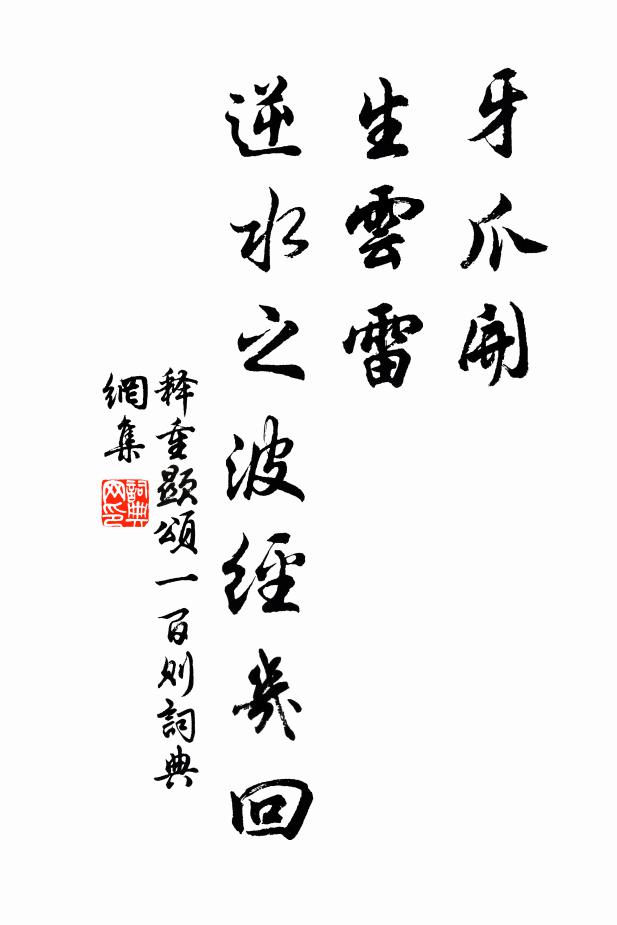 牙爪開
生雲雷
逆水之波經幾回
释重顯頌一百则詞典
網集
詞典
网印